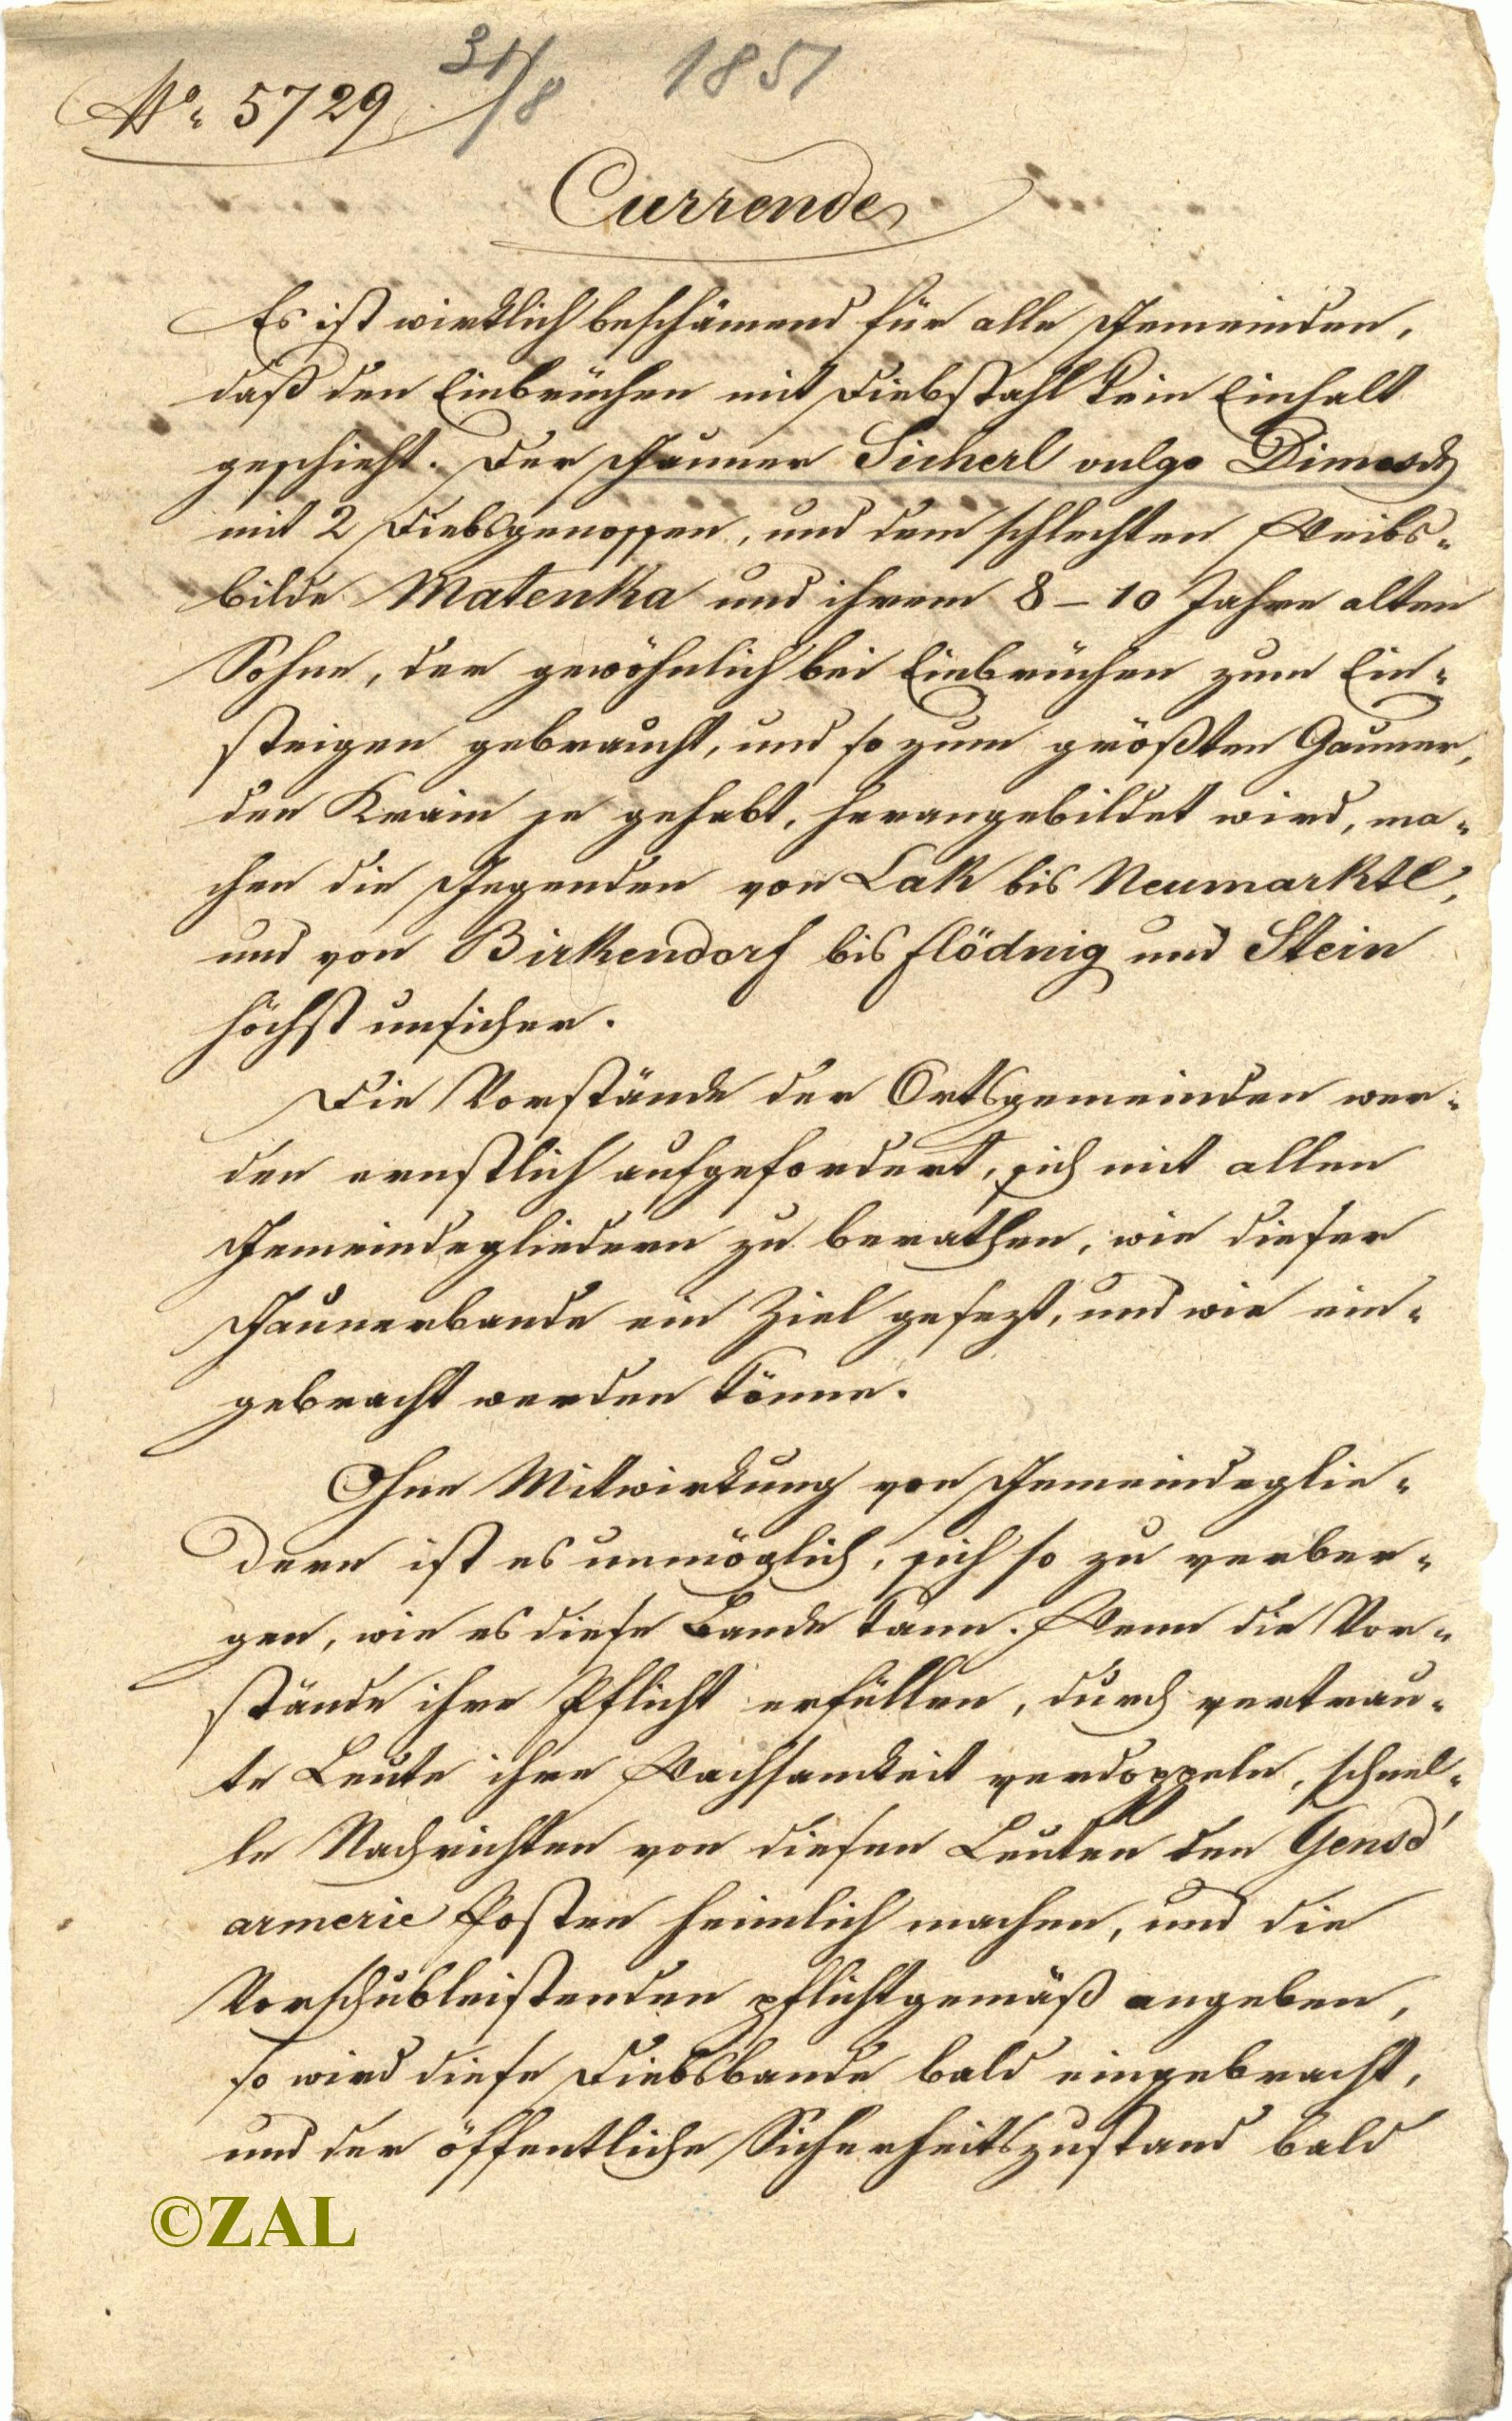 № 5729 31/8 1851
Currende
Es ist wirklich beschämend für alle Gemeinden,
daß den Einbrüchen mit Diebstahl kein Einhalt
geschieht. Der Gauner Sicherl vulgo Dimasch
mit 2 Diebsgenossen, und dem schlechten Weibs-
bilde Matenka und ihrem 8 – 10 Jahre alten
Sohne, der gewöhnlich bei Einbrüchen zum Ein-
steigen gebraucht, und so zum größten Gauner,
den Krain je gehabt, herangebildet wird, ma-
chen die Gegenden von Lak bis Neumarktl,
und von Birkendorf bis Flödnig und Stein
höchst unsicher.
Die Vorstände der Ortsgemeinden wer-
den ernstlich aufgefordert, sich mit allen
Gemeindegliedern zu berathen, wie dieser
Gaunerbande ein Ziel gesezt, und wie ein-
gebracht werden könne.
Ohne Mitwirkung von Gemeindeglie-
dern ist es unmöglich, sich so zu verber-
gen, wie es diese Bande kann. Wenn die Vor-
stände ihre Pflicht erfüllen, durch vertrau-
te Leute ihre Wachsamkeit verdoppeln, schnel-
le Nachrichten von diesen Leuten den Gensd'
armerie Posten heimlich machen, und die
Vorschubleistenden pflichtgemäß angeben,
so wird diese Diebsbande bald eingebracht,
und der öffentliche Sicherheitszustand bald
©ZAL